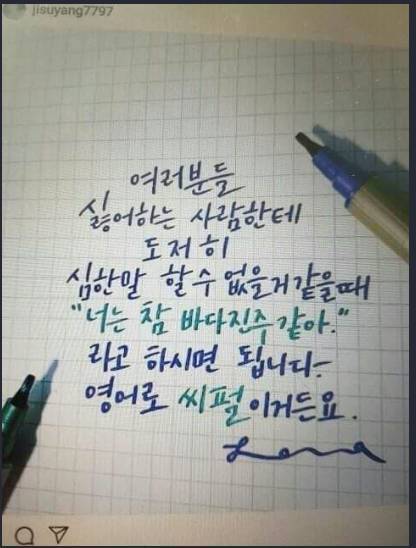 jisuyang7797
여러분들
싫어하는 사람한테
도저히
심한말 할 수 없을거 같을때
"너는 참 바다진주 같아."
라고 하시면 됩니다-
영어로 씨펄이거든요.
Lena